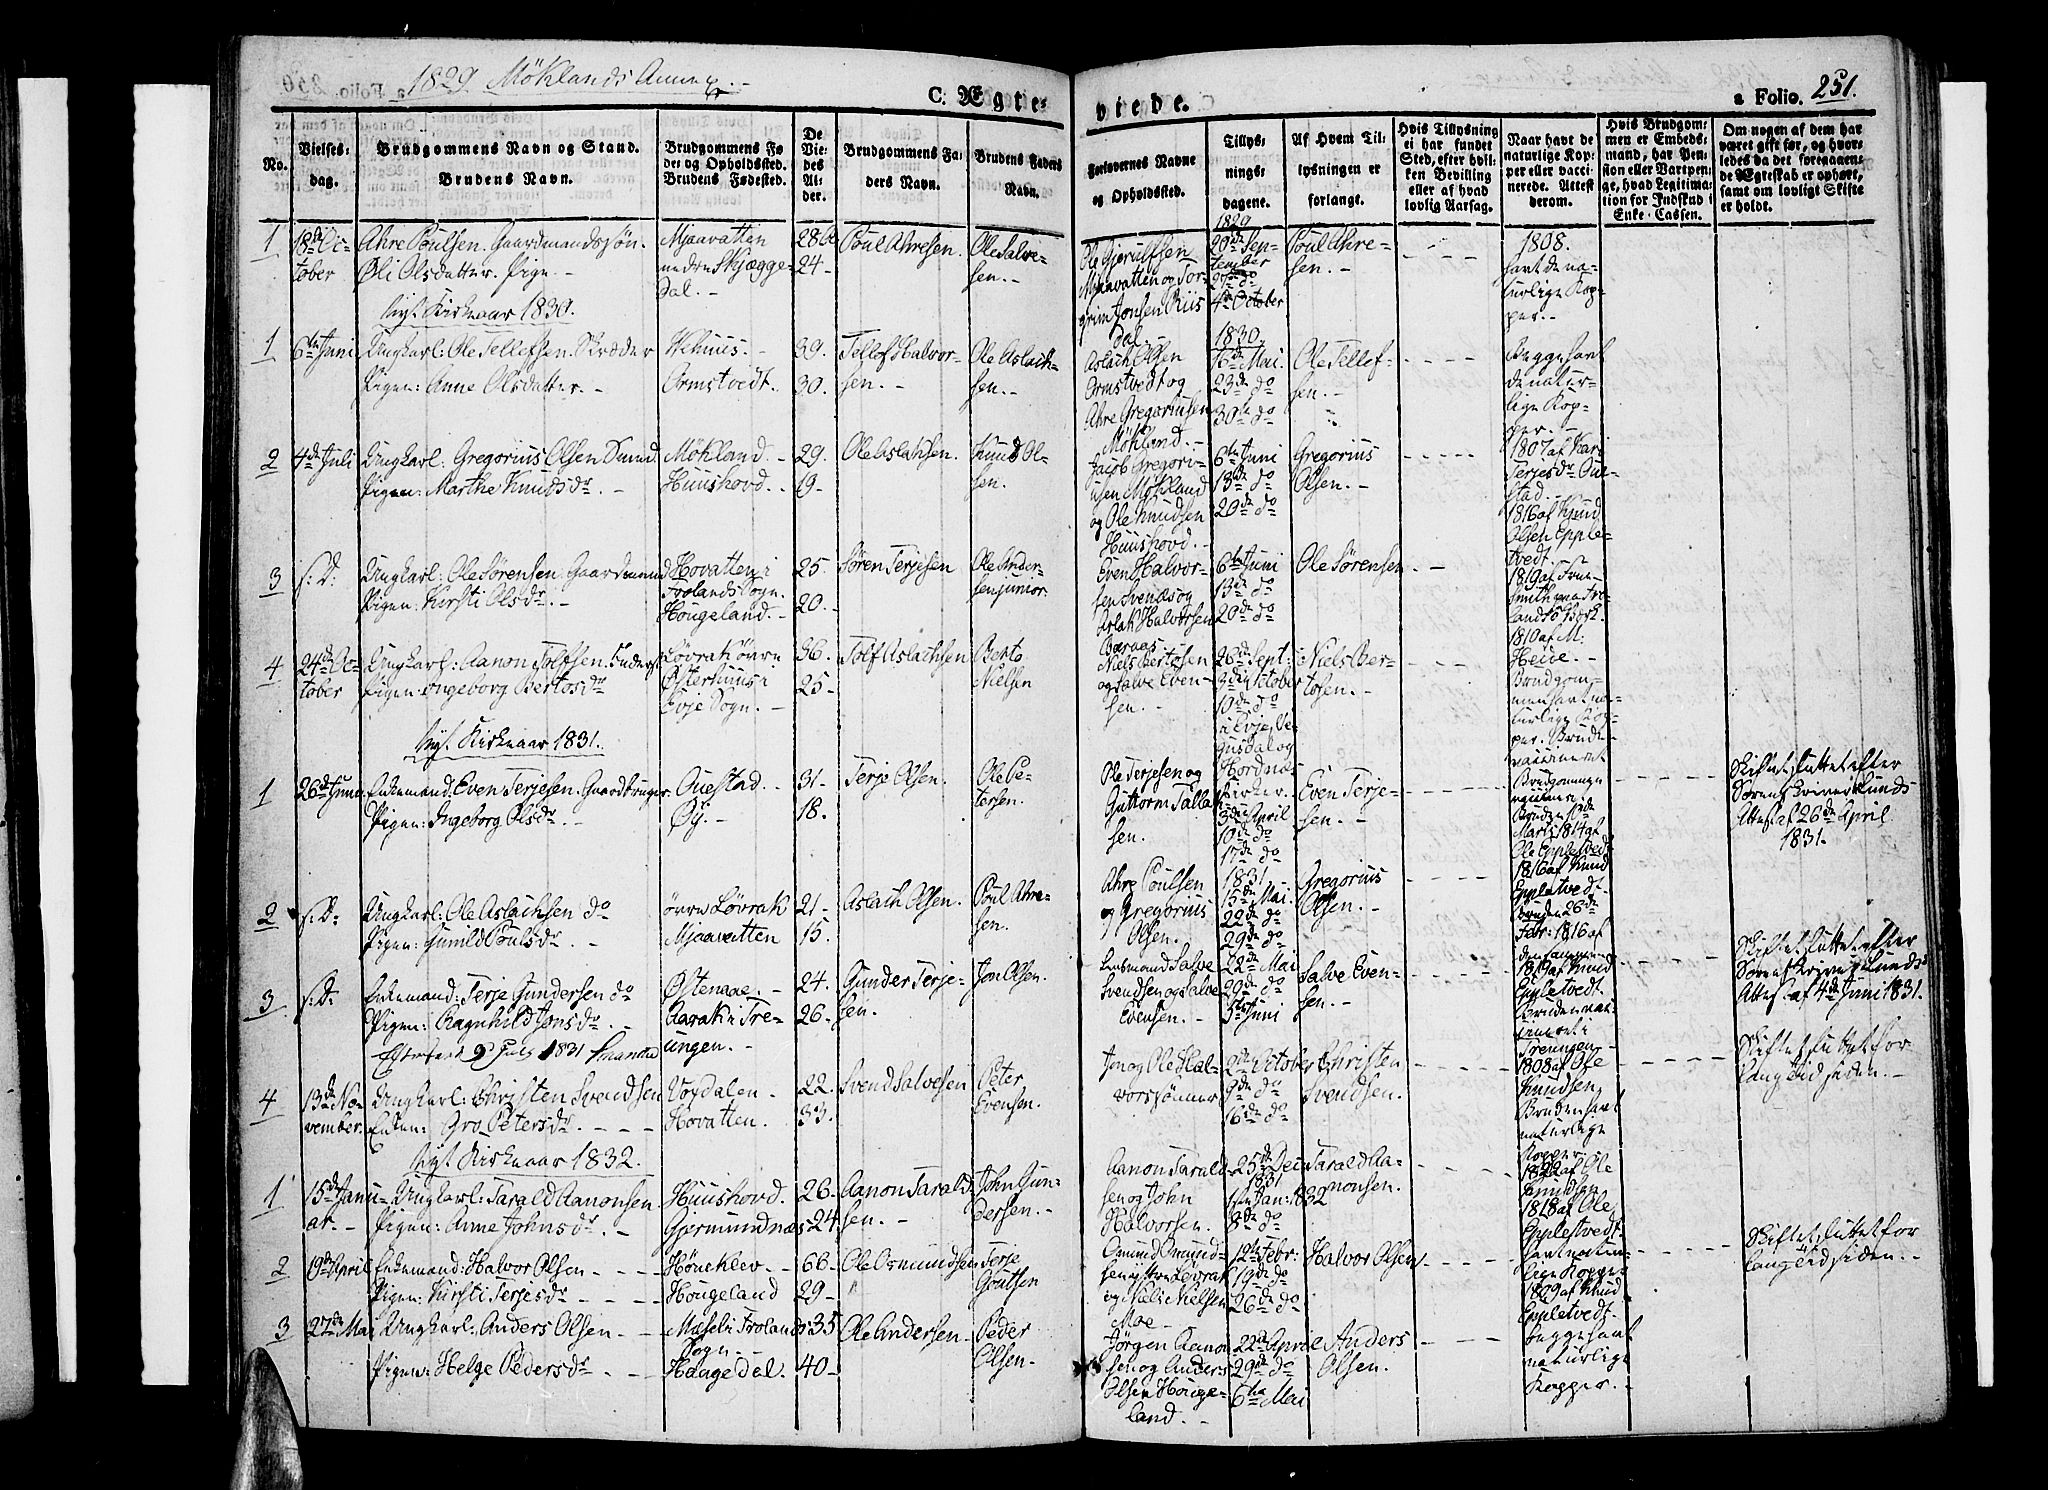 1829 Möklands Annex
C. Ægte-
viede.
a Folio. 251.
No.
Vielses-
dag.
Brudgommens Navn og Stand.
Brudens Navn.
Brudgommens Fø
de- og Opholdssted.
Brudens Fødested.
De
Vie-
des
Al-
der.
Brudgommens Fa-
ders Navn.
Brudens Faders
Navn.
Forlovernes Navne
og Opholdssted.
Tillys-
nings-
dagene.
Af Hvem Til-
lysningen er
forlangt.
Hvis Tillysning
ei har fundet
Sted, efter hvil-
ken Bevilling
eller af hvad
lovlig Aarsag.
Naar havt de
naturlige Kop-
per eller vacci-
nerede. Attest
derom.
Hvis Brudgom-
men er Embeds-
mand, har Pen-
sion eller Vartpen-
ge, hvad Legitima-
tion for Indskud i
Enke-Cassen.
Om nogen af dem har
været gift før, og hvor-
ledes da det foregaaen-
de Ægteskab er ophørt,
samt om lovligt Skifte
er holdt.
1
18de Oc-
tober
Ahre Poulsen. Gaardmandssøn.
Øli Olsdatter. Pige.
Mjaavatten
nedre Skjægge-
dal.
28
24
Poul Ahresen.
Ole Salve-
sen.
Ole Gjerulfsen
Mjaavatten og Tor-
grim Jonsen Riis
dal.
1829
20de Sep-
tember
27de do
4de October
Poul Ahre-
sen.
1808.
havt de na-
turlige Kop-
per.
Nyt Kirkeaar 1830.
1
6te Juni
Ungkarl: Ole Tellefsen. Skrædder
Pigen: Anne Olsdatter.
Vehuus.
Ormstvedt.
39.
30.
Tellef Halvor-
sen.
Ole Aslach-
sen.
Aslach Olsen
Ormstvedt og
Ahre Gregoriusen
Mökland.
1830.
16de Mai.
23de do
30te do
Ole Tellef-
sen.
Begge havt
de natur-
lige Kop-
per.
2
4de Juli
Ungkarl: Gregorius Olsen Smed.
Pigen: Marthe Knudsdr.
Mökland.
Huushovd.
29.
19.
Ole Aslachsen.
Knud Ol-
sen.
Jacob Gregori-
usen Mökland
og Ole Knudsen
Huushovd.
6te Juni
13de do
20de do
Gregorius
Olsen.
1807 af Kari
Terjesdr Oue-
stad.
1816 af Knud
Olsen Epple-
tvedt.
3
s: D:
Ungkarl: Ole Sørensen. Gaardmand
Pigen: Kirsti Olsdr.
Hovatten i
Frolands Sogn.
Hougeland.
25.
20.
Søren Terjesen
Ole Ander-
sen junior.
Even Halvor-
sen Svenæs og
Aslak Halvorsen
6te Juni
13de do
20de do
Ole Sørensen
1810 af M:
Heide.
4
24de Oc-
tober
Ungkarl: Aanon Tolfsen.
Pigen: Ingeborg Bertosdr
Løvrak övre
Østerhuus i
Evje Sogn.
36.
25.
Tolf Aslachsen
Berto
Nielsen
Niels Bertosen
og Salve Even-
sen.
26de Sept:
3de October
10de do
i Evje, Ve-
gusdal og
Hordnæs
Kirker.
Niels Ber-
tosen.
Brudgom-
men havt na-
turlige Kop-
per. Bruden
vaccineret
Nyt Kirkeaar 1831.
1
26de Juni
Enkemand: Even Terjesen. Gaardbruger
Pigen: Ingeborg Olsdr.
Ouestad.
Øy.
31.
18.
Terje Olsen.
Ole Pe-
tersen.
Ole Terjesen og
Guttorm Tallak-
sen.
3de April
10de do
17de do
Even Terje-
sen.
Skiftet sluttet efter
Sorenskriver Lunds
Attest af 26de April
1831.
2
s: D:
Ungkarl: Ole Aslachsen do
Pigen: Gunild Poulsdr.
övre Løvrak
Mjaavatten
21.
15.
Aslach Olsen.
Poul Ahre-
sen.
Ahre Poulsen
og Gregorius
Olsen.
1831
15de Mai.
22de do
29de do
Gregorius
Olsen.
1816 af Knud
Eppletvedt.
Bruden 26de
Febr: 1816 af
den samme
3
s: D:
Enkemand: Terje Gundersen do
Pigen: Ragnhild Jonsdr.
Østenaae.
Aarak i Tre-
ungen.
24.
26.
Gunder Terje-
sen.
Jon Olsen.
Lensmand Salve
Svendsen og Salve
Evensen.
22de Mai
29de do
5te Juni
Salve Even-
sen.
1819 af Knud
Eppletvedt.
Bruden vac-
cineret i
Treungen
Skiftet sluttet efter
Sorenskriver Lunds
Attest af 4de Juni 1831.
4
13de No-
vember.
Ungkarl: Christen Svendsen
Enken: Gro Petersdr.
Vordalen
Hovatten.
22.
33.
Svend Salvesen
Peter
Evensen.
Jon og Ole Hal-
vorsønner
2de October
9de do
16de do
Christen
Svendsen.
1808 af Ole
Knudsen,
Bruden havt
naturlige
Kopper
Skiftet sluttet for
lang Tid siden.
Nyt Kirkeaar 1832.
1
15de Janu-
ar.
Ungkarl: Tarald Aanonsen
Pigen: Anne Johnsdr.
Huushovd.
Gjermundnæs
26.
24.
Aanon Tarald-
sen.
John Gun-
dersen.
Aanon Tarald-
sen og John
Halvorsen.
25de Dec
1831
1ste Jan: 1832
8de do
Tarald Aa-
nonsen.
1822 af Ole
Knudsen
1818 af Ole
Eppletvedt.
2
19de April
Enkemand: Halvor Olsen
Pigen: Kirsti Terjesdr
Höneklev
Hougeland
66
29
Ole Osmundsen
Terje
Goutten
Osmund Osmund-
sen ytre Løvrak
og Niels Nielsen
Moe
12te Febr:
19de do
26de do
Halvor Olsen
havt natur-
lige Kopper
1829 af Knud
Eppletvedt
Skiftet sluttet for
lang Tid siden.
3
27de Mai
Ungkarl: Anders Olsen
Pigen: Helge Pedersdr.
Mæsel i Frolands
Sogn.
Haagedal.
35
40
Ole Andersen
Peder
Olsen.
Jørgen Aanon-
sen og Anders
Olsen Houge-
land.
22de April
29de do
6te Mai
Anders
Olsen.
begge havt
naturlige
Kopper.